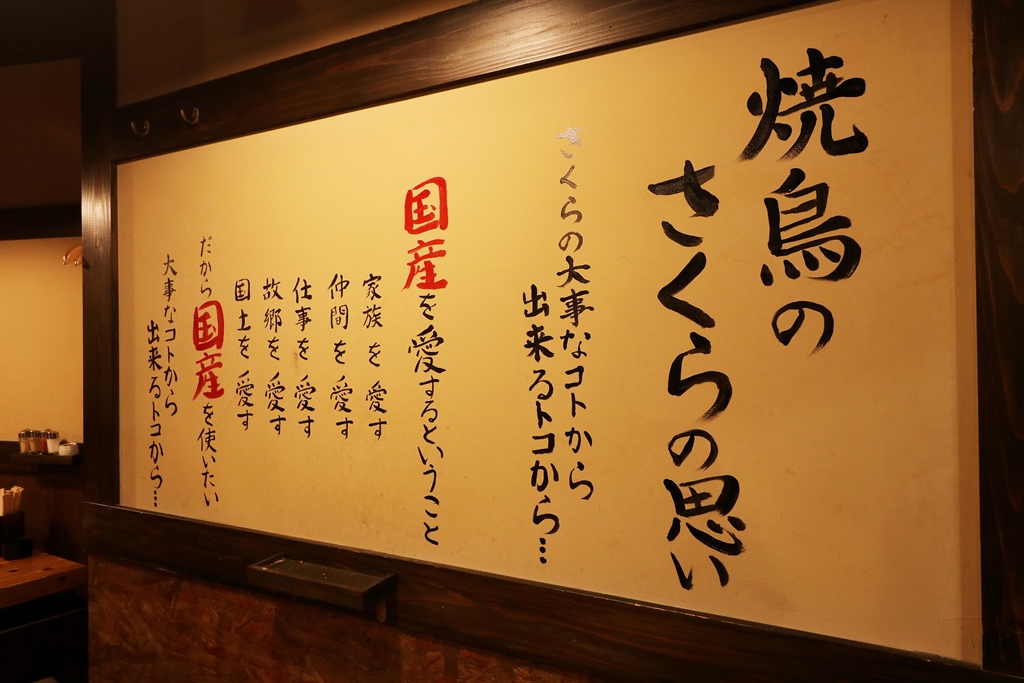 焼鳥の
さくらの思い
さくらの大事なコトから
出来るトコから…
国産を愛するということ
家族を愛す
仲間を愛す
仕事を愛す
故郷を愛す
国土を愛す
だから国産を使いたい
大事なコトから
出来るトコから…